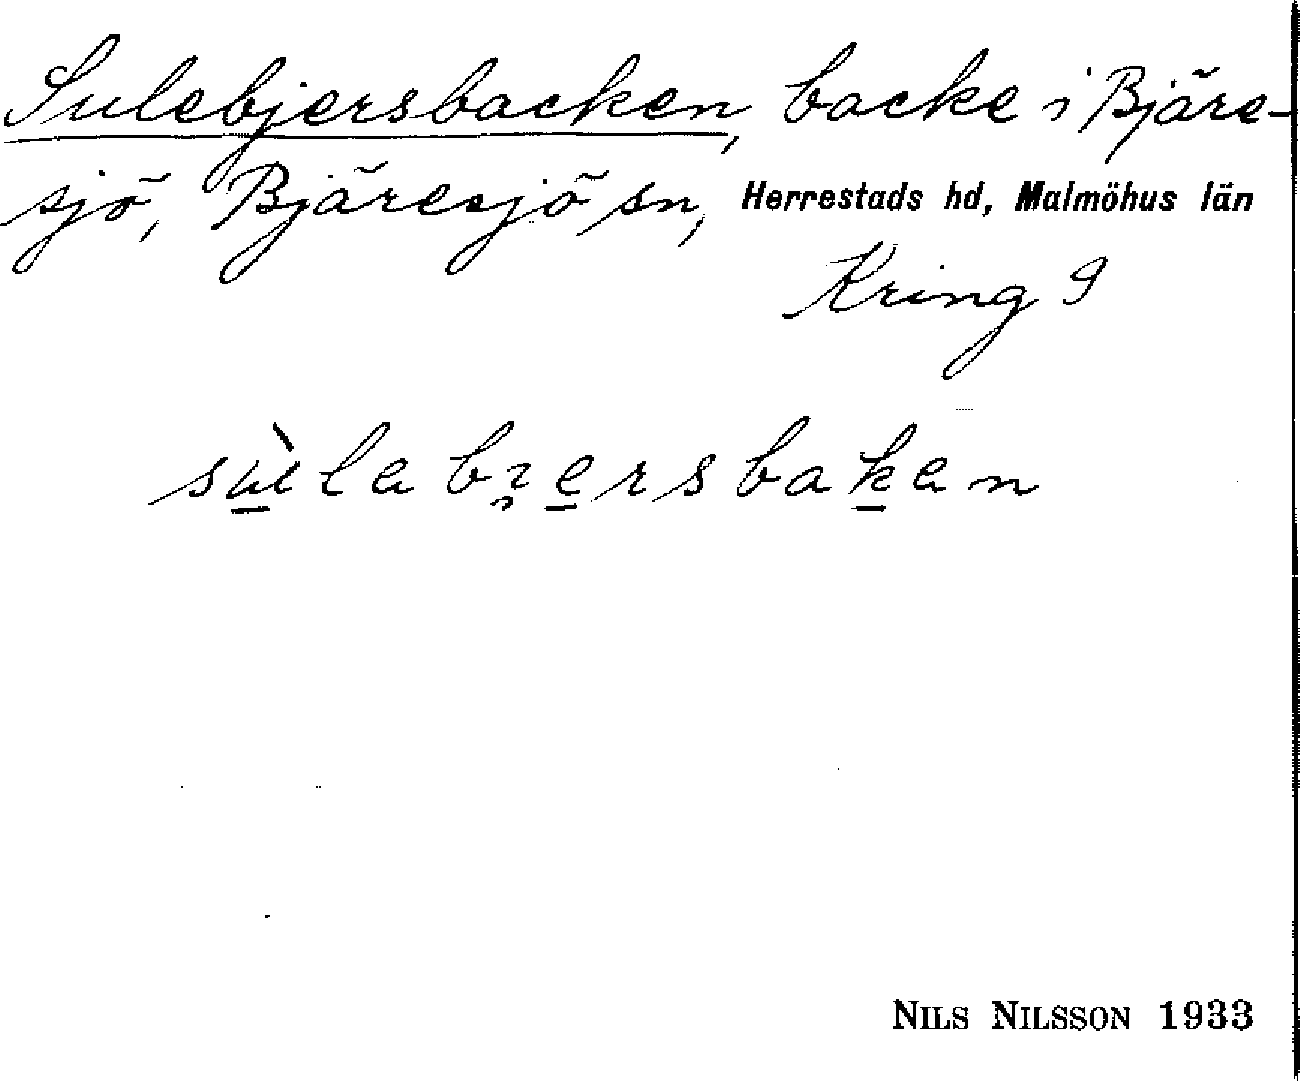 Sulebjersbacken, backe i Bjäre-
sjö, Bjäresjö sn, Herrestads hd, Malmöhus län
Kring 9
NILS NILSSON 1933